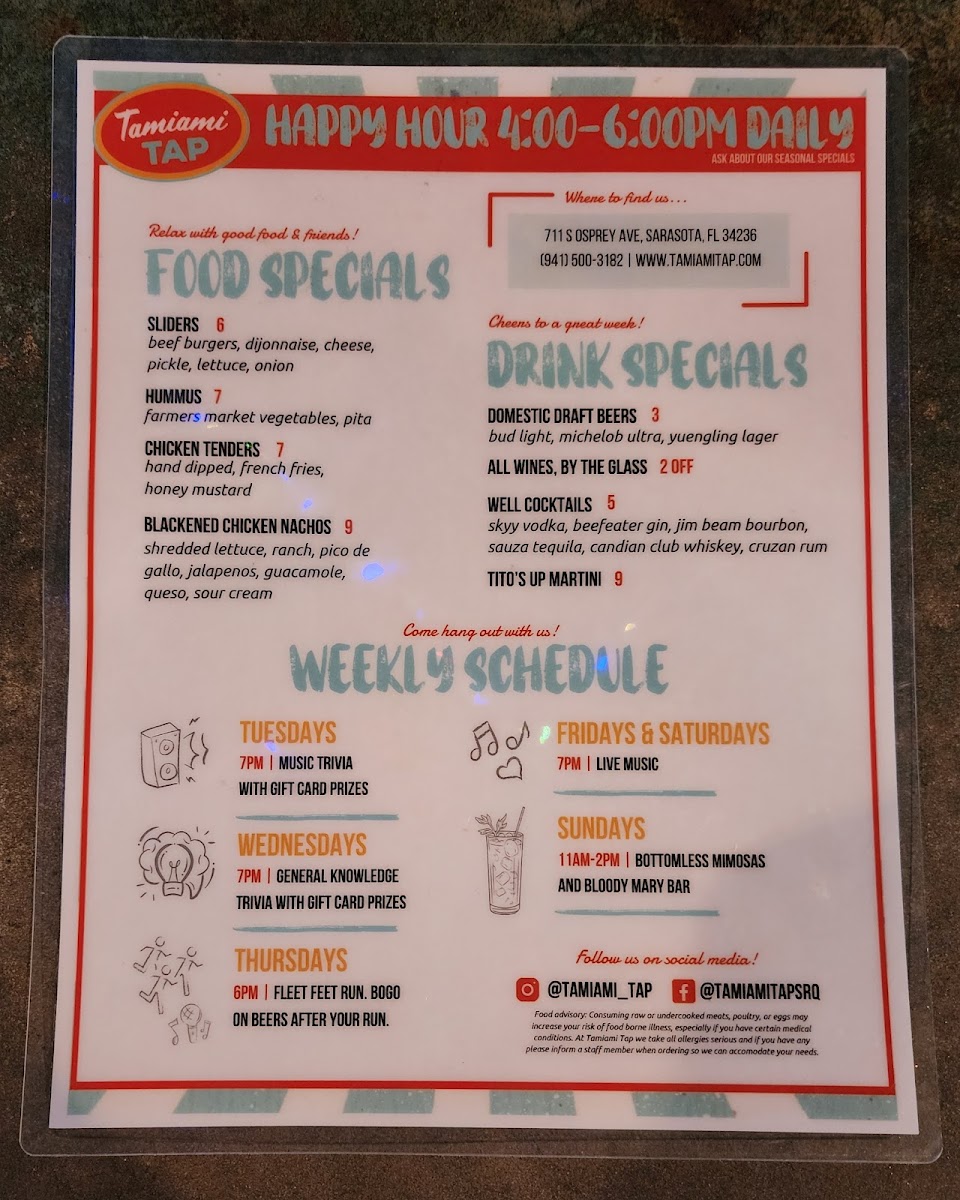 Tamiami
TAP
HAPPY HOUR 4:00-6:00PM DAILY
ASK ABOUT OUR SEASONAL SPECIALS
Where to find us...
711 S OSPREY AVE, SARASOTA, FL 34236
(941) 500-3182 | WWW.TAMIAMITAP.COM
Relax with good food & friends!
FOOD SPECIALS
SLIDERS 6
beef burgers, dijonnaise, cheese,
pickle, lettuce, onion
HUMMUS 7
farmers market vegetables, pita
CHICKEN TENDERS 7
hand dipped, french fries,
honey mustard
BLACKENED CHICKEN NACHOS 9
shredded lettuce, ranch, pico de
gallo, jalapenos, guacamole,
queso, sour cream
Cheers to a great week!
DRINK SPECIALS
DOMESTIC DRAFT BEERS 3
bud light, michelob ultra, yuengling lager
ALL WINES, BY THE GLASS 2 OFF
WELL COCKTAILS 5
skyy vodka, beefeater gin, jim beam bourbon,
sauza tequila, candian club whiskey, cruzan rum
TITO'S UP MARTINI 9
Come hang out with us!
WEEKLY SCHEDULE
TUESDAYS
7PM | MUSIC TRIVIA
WITH GIFT CARD PRIZES
WEDNESDAYS
7PM | GENERAL KNOWLEDGE
TRIVIA WITH GIFT CARD PRIZES
THURSDAYS
6PM | FLEET FEET RUN. BOGO
ON BEERS AFTER YOUR RUN.
FRIDAYS & SATURDAYS
7PM | LIVE MUSIC
SUNDAYS
11AM-2PM | BOTTOMLESS MIMOSAS
AND BLOODY MARY BAR
Follow us on social media!
@TAMIAMI_TAP @TAMIAMITAPSRQ
Food advisory: Consuming raw or undercooked meats, poultry, or eggs may
increase your risk of food borne illness, especially if you have certain medical
conditions. At Tamiami Tap we take all allergies serious and if you have any
please inform a staff member when ordering so we can accomodate your needs.